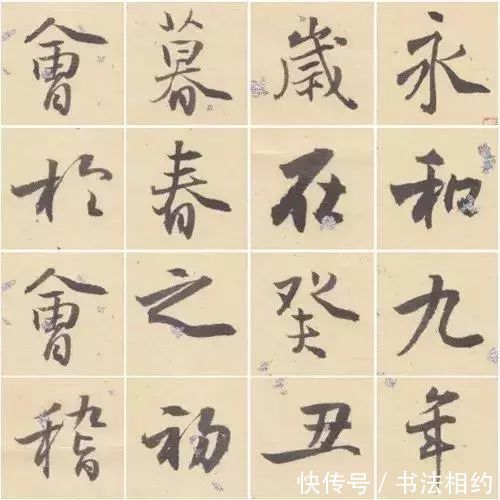 永和九年
歲在癸丑
暮春之初
會於會稽
快传号/书法相约